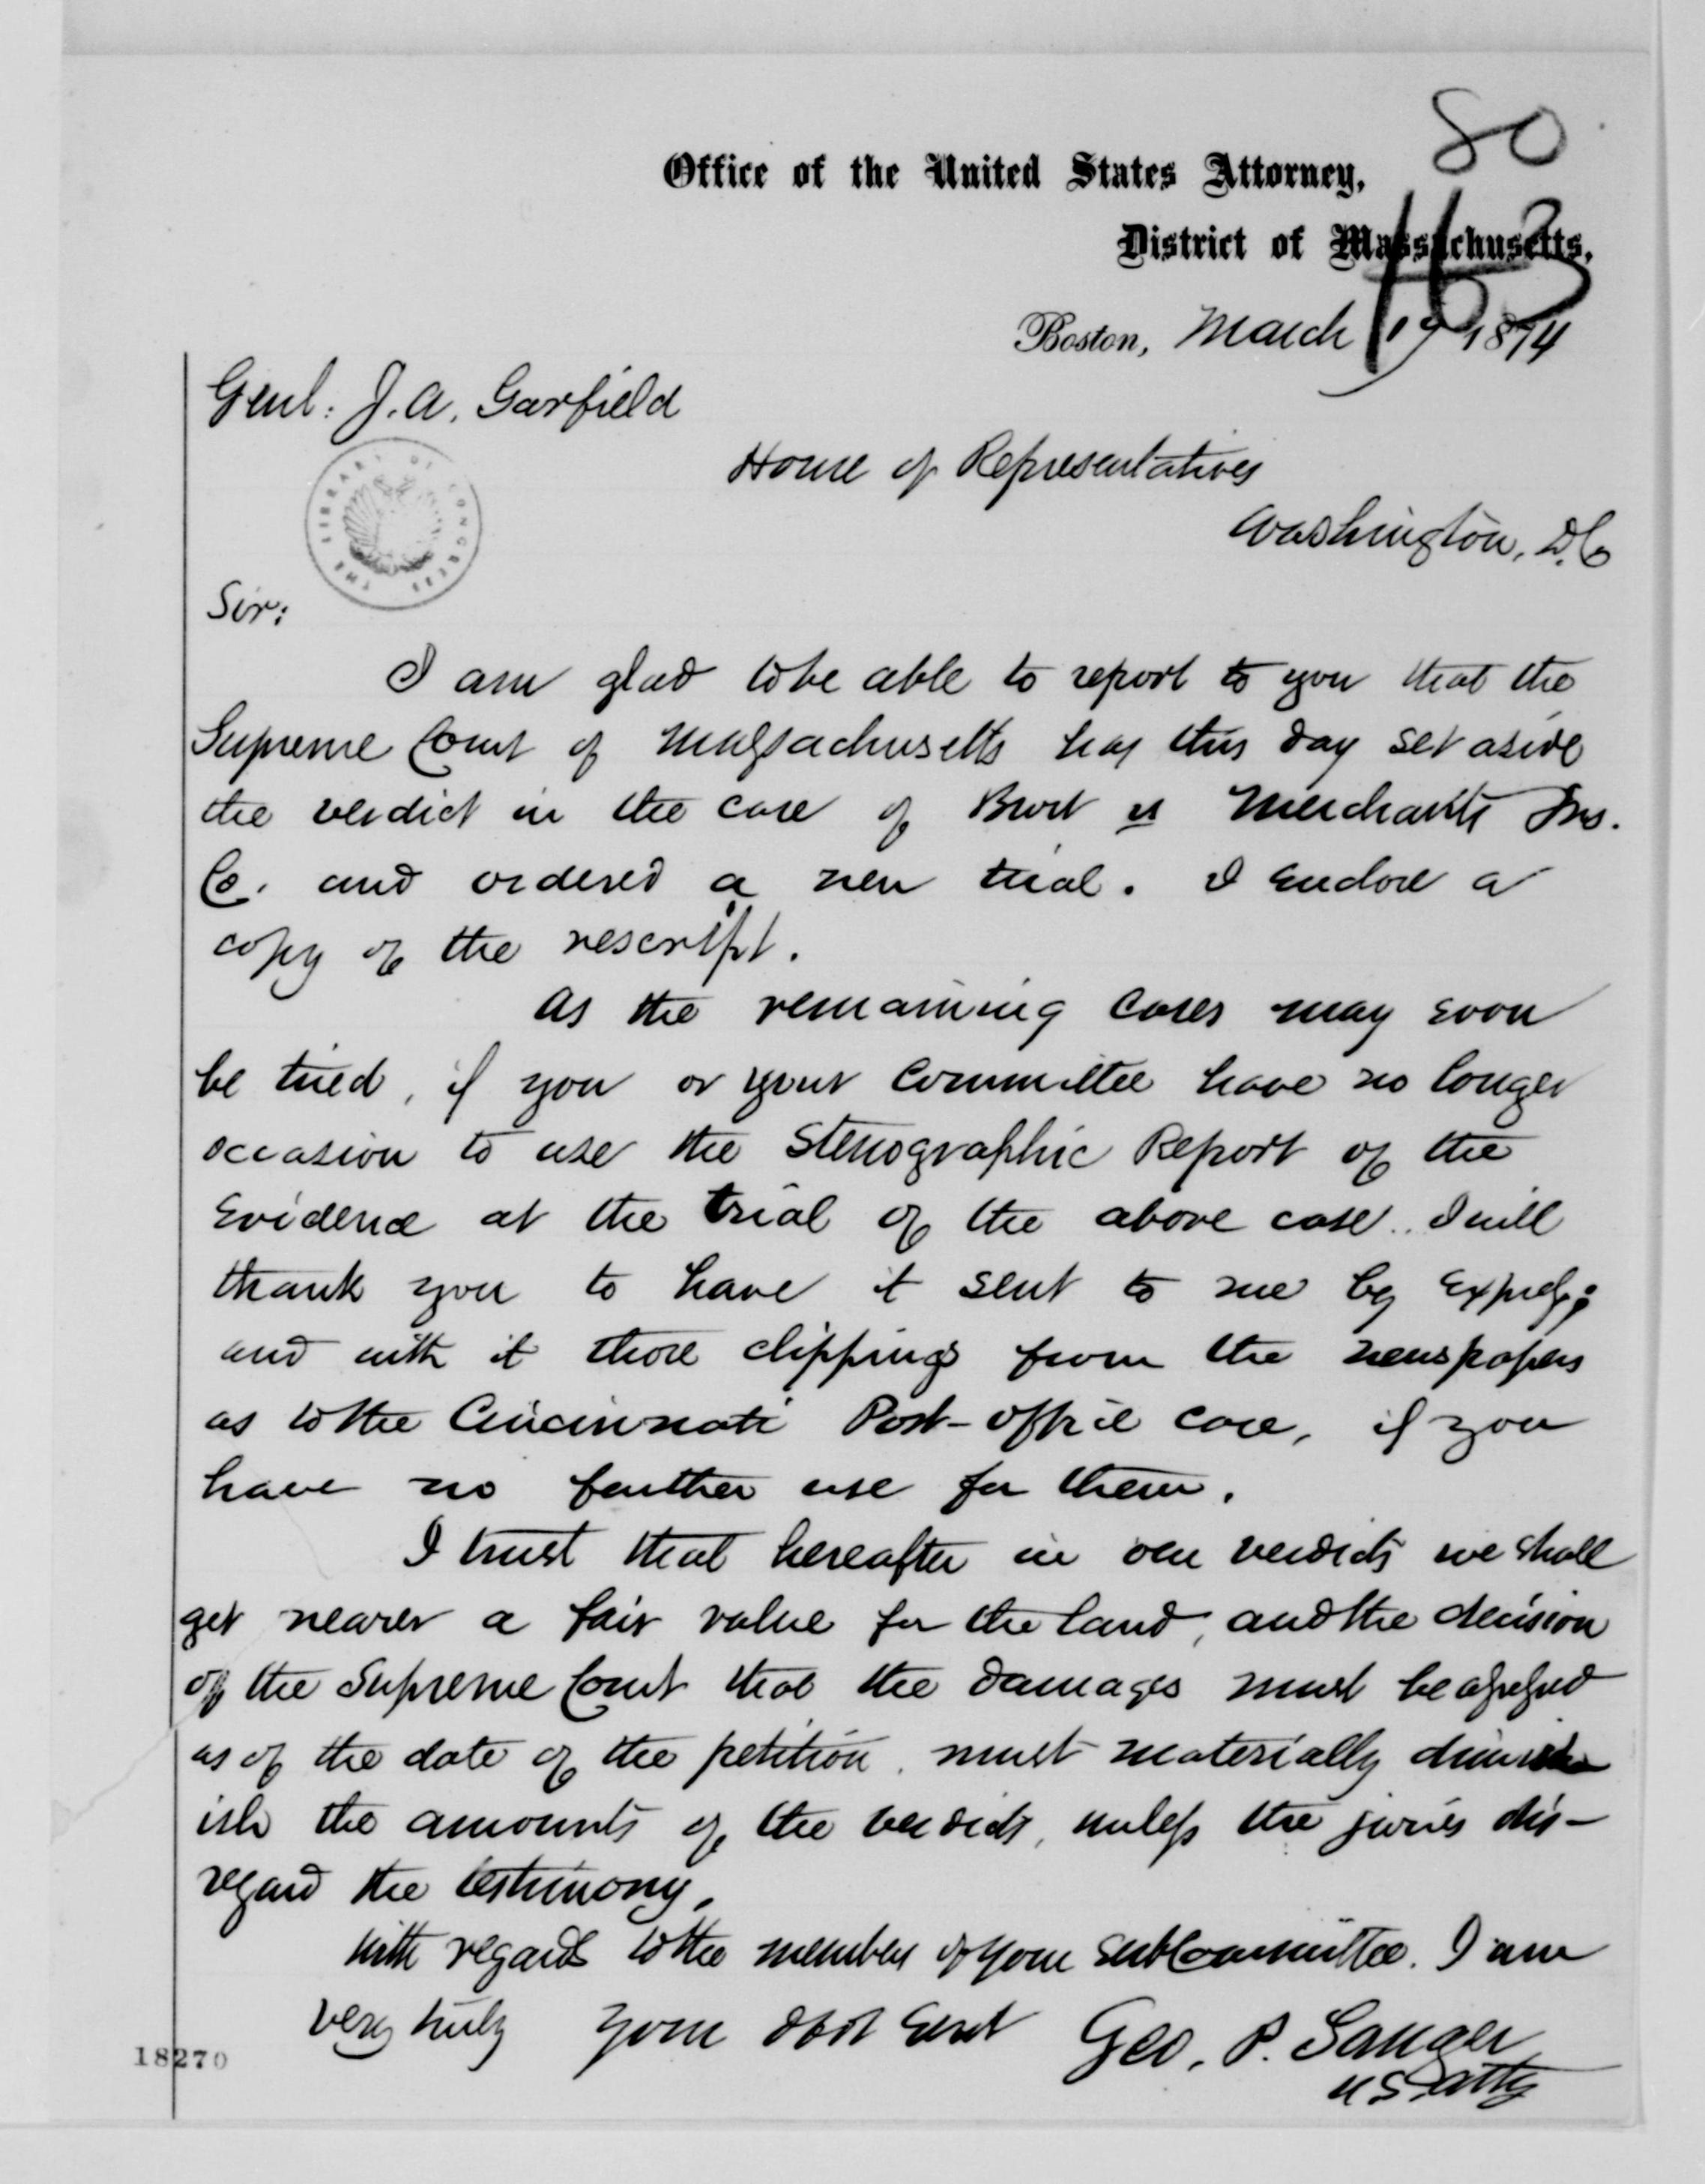 80
Office of the United States Attorney,
District of Massachusetts,
Boston, March 19 1874
Genl: J. A. Garfield
House of Representatives
Washington, D.C
THE LIBRARY OF CONGRESS
Sir:
I am glad to be able to report to you that the
Supreme Court of Massachusetts has this day set aside
the verdict in the case of Burt vs Merchants Ins.
Co. and ordered a new trial. I enclose a
copy of the rescript.
As the remaining cases may soon
be tried, if you or your Committee have no longer
occasion to use the Stenographic Report of the
Evidence at the trial of the above case. I will
thank you to have it sent to me by Express;
and with it those clippings from the newspapers
as to the Cincinnati Post-office case, if you
have no further use for them.
I trust that hereafter in our verdicts we shall
get nearer a fair value for the land, and the decision
of the Supreme Court that the damages must be assessed
as of the date of the petition, must materially dimin
ish the amounts of the verdicts, unless the juries dis-
regard the testimony.
With regards to the members of your subcommittee. I am
very truly your obdt Servt Geo. P. Sanger
US Atty
18270